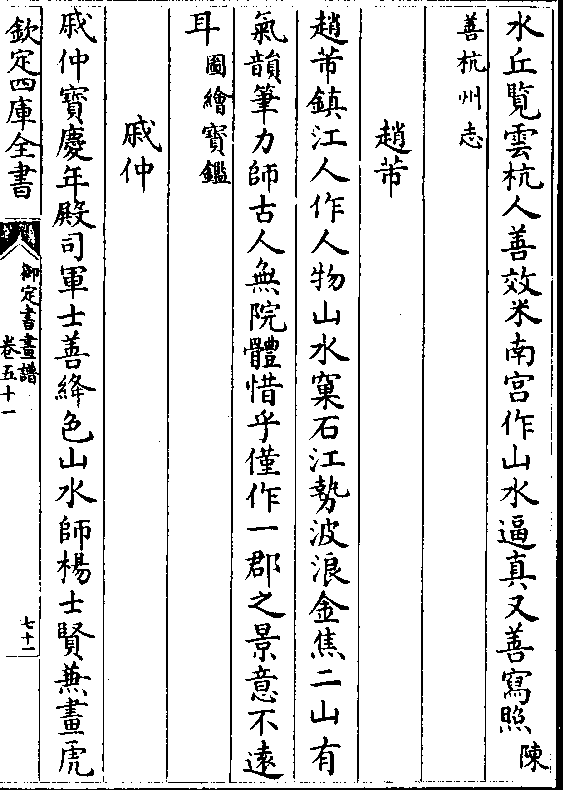 水丘覽雲杭人善效米南宫作山水逼真又善寫照陳
善杭州志
趙芾
趙芾鎮江人作人物山水窠石江勢波浪金焦二山有
氣韻筆力師古人無院體惜乎僅作一郡之景意不遠
耳圖繪寳鑑
戚仲
戚仲寳慶年殿司軍士善絳色山水師楊士賢兼畫虎
欽定四庫全書
御定書畫譜
卷五十一
七十一